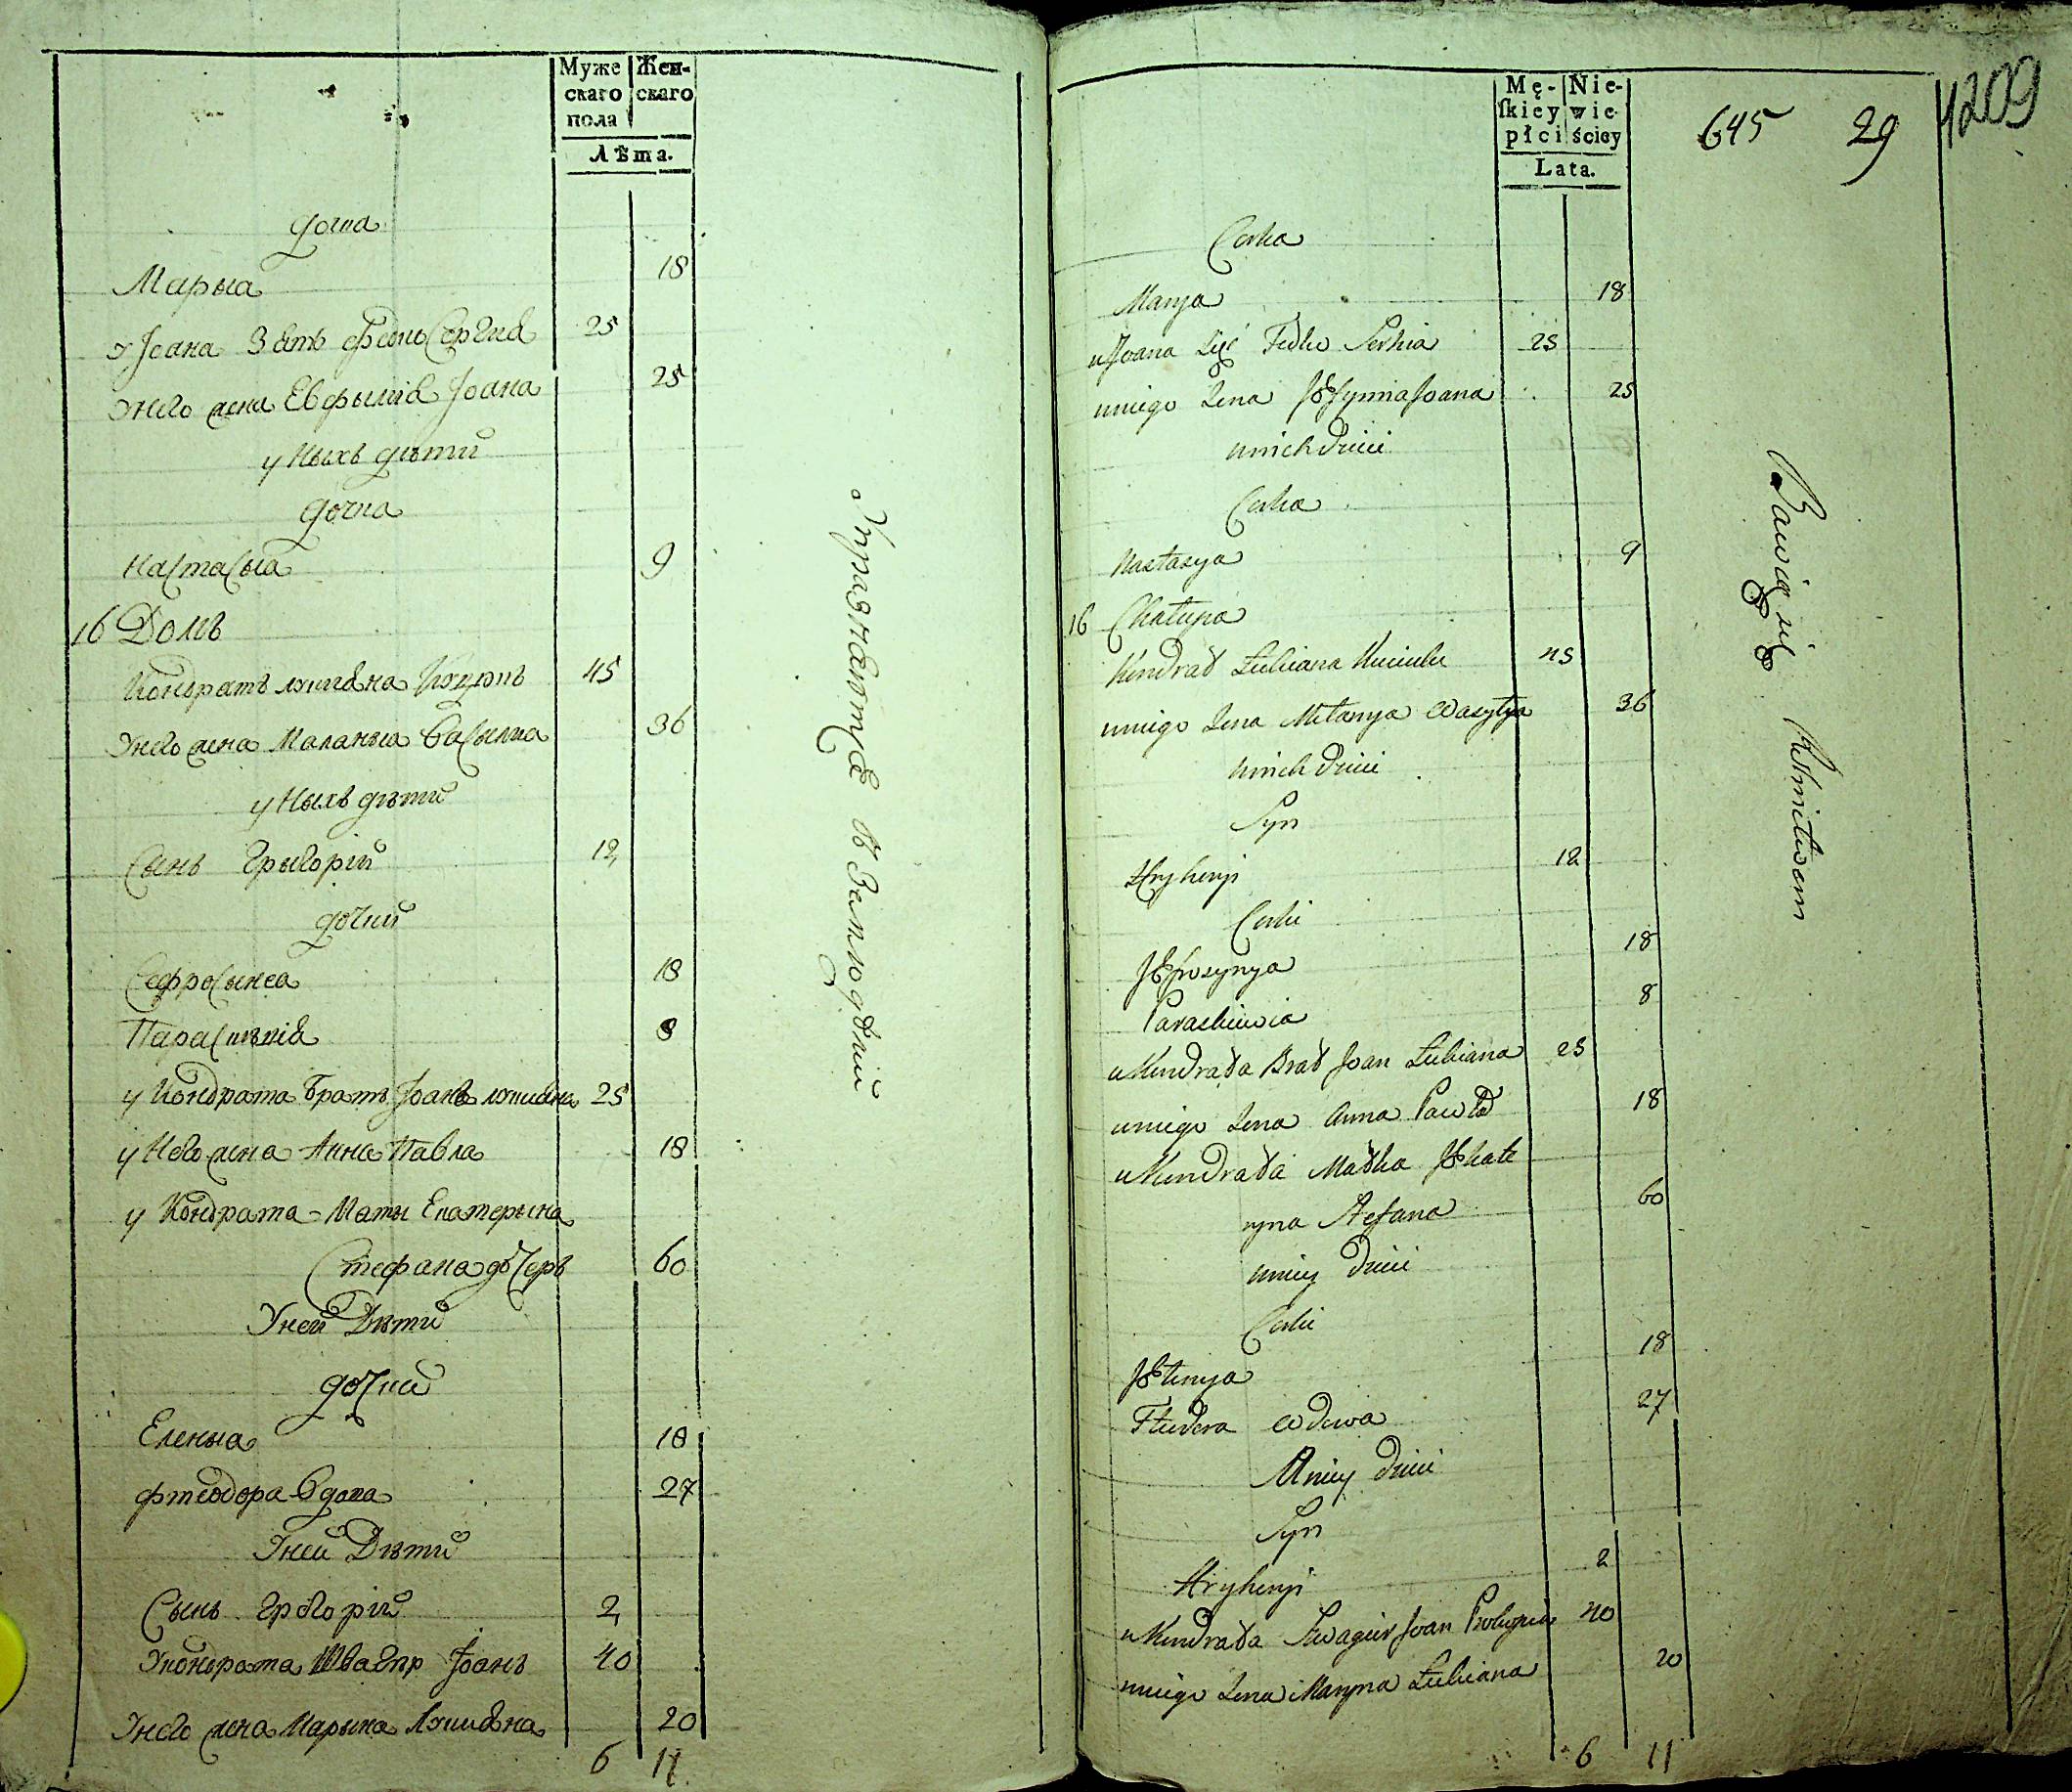 Муже
скаго
пола
Жен-
скаго
Лѣта.
дочка
Марыа 18
У Іоана Зять Федко Сергиа 25
Унего жена Евфыміа Іоана 25
у Ныхъ дѣти
дочка
Настасыа 9
16 Домъ
Кондратъ лукіана Куцюкъ 45
Унего жена Маланыа Васылиа 36
у Ныхъ дѣти
Сынъ Грыгорій 12
дочки
Сефросынеа 18
Параскевіа 8
у Кондрата братъ Іоанъ лукиана 25
у Него жена Анна Павла 18
у Кондрата Маты Екатерына
Стефана дочеръ 60
Уней Дѣти
дочки
Еленыа 18
фтеодора Вдова 27
Уней Дѣти
Сынъ Григорій 2
Укондрата Швагѣр Іоанъ 40
Унего жена Марына Лукиана 20
6 11
Упражнаютца в Землюдѣлій
Mę-
skiey
płci
Nie-
wie-
ściey
Lata.
645 29 1209
Corka
Marya 18
u Joana Zięć Fedko Serhia 25
uniego Żena Jefymia Joana 25
unich dzieci
Corka
Nastasya 9
16 Chałupa
Kondrad Łukiana Kuciuk 45
uniego Żena Melanya Wasyłya 36
unich dzieci
Syn
Hryhoryi 12
Corki
Jefrosynya 18
Paraskiewia 8
u Kondrada Brad Joan Łukiana 25
uniego Żena Anna Pawła 18
u Kondrada Madka Jekate
ryna Stefana 60
uniey dzieci
Corki
Jelenya 18
Fteodora Wdowa 27
Uniey dzieci
Syn
Hryhoryi 2
u Kondrada Szwagier Joan Prokopia 40
uniego Żena Maryna Łukiana 20
6 11
Bawią się Rolnictwem